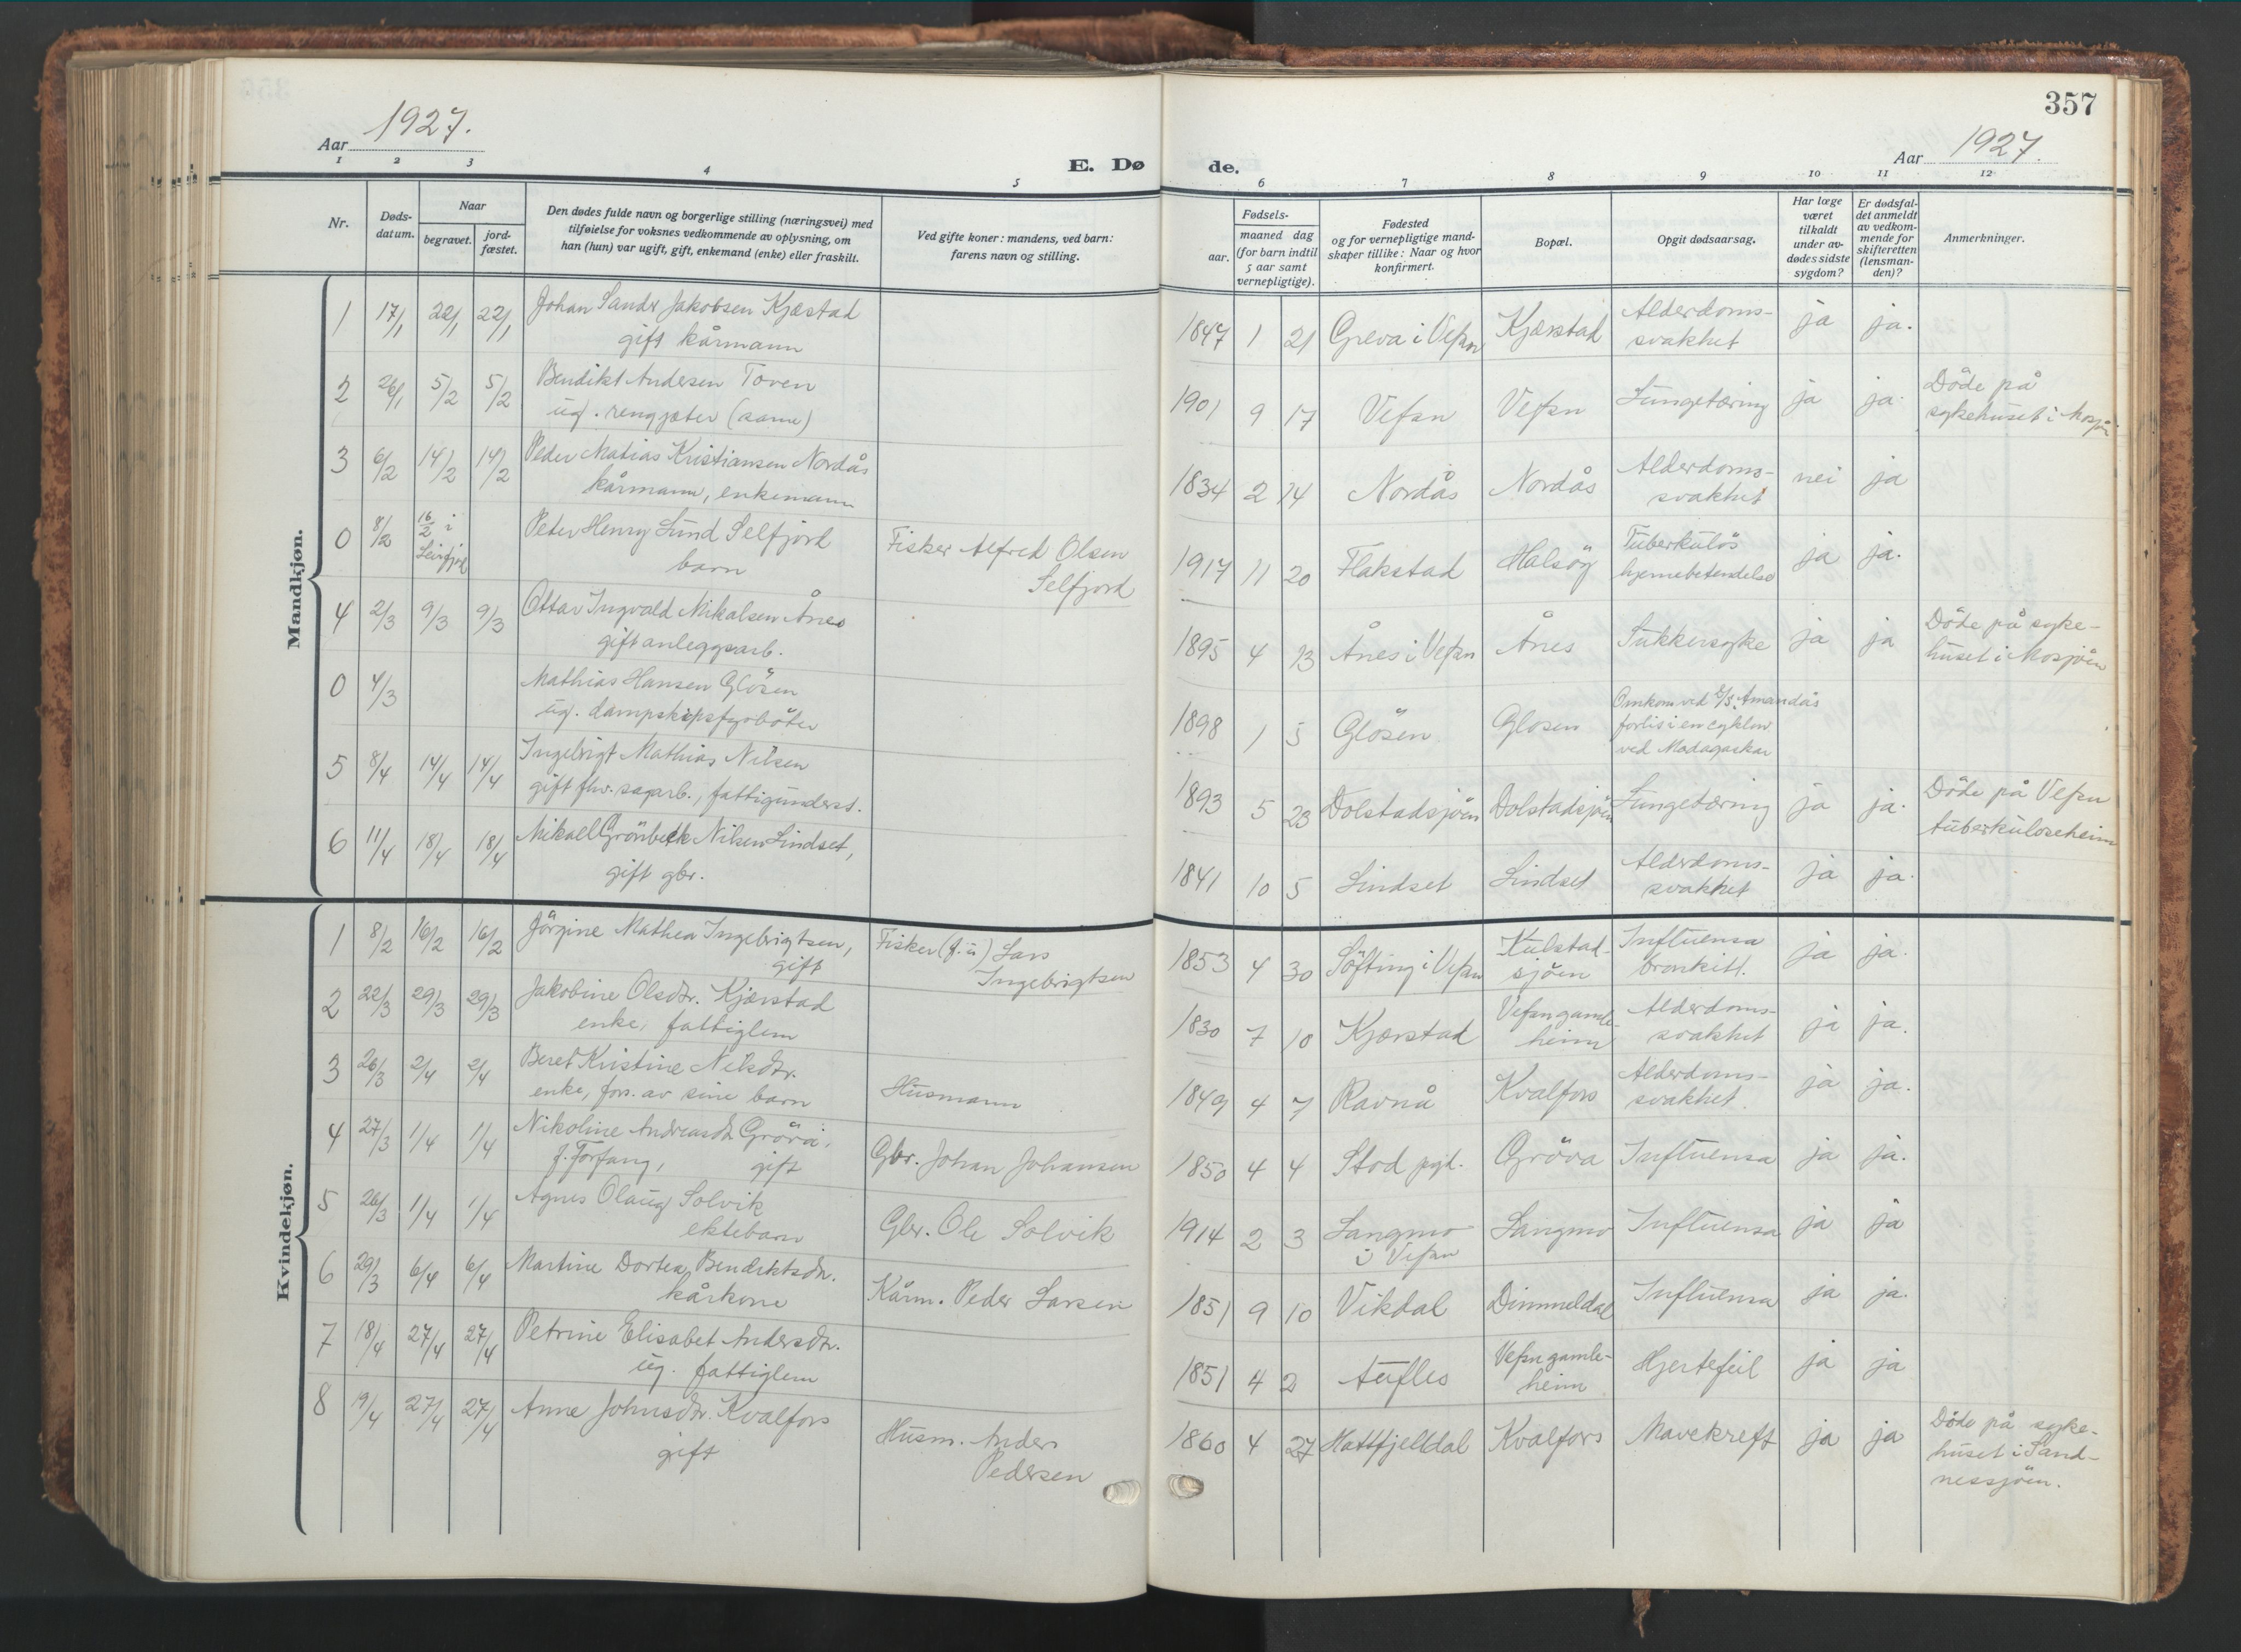 357
Aar 1927.
E. Dø de.
Aar 1927.
1 2 3 4 5 6 7 8 9 10 11 12
Nr.
Døds-
datum.
Naar
begravet.
jord-
fæstet.
Den dødes fulde navn og borgerlige stilling (næringsvei) med
tilføielse for voksnes vedkommende av oplysning, om
han (hun) var ugift, gift, enkemand (enke) eller fraskilt.
Ved gifte koner: mandens, ved barn:
farens navn og stilling.
Fødsels-
aar.
maaned dag
(for barn indtil
5 aar samt
vernepligtige).
Fødested
og for vernepligtige mand-
skaper tillike: Naar og hvor
konfirmert.
Bopæl.
Opgit dødsaarsag.
Har læge
været
tilkaldt
under av-
dødes sidste
sygdom?
Er dødsfal-
det anmeldt
av vedkom-
mende for
skifteretten
(lensman-
den)?
Anmerkninger.
Mandkjøn.
1 17/1 22/1 22/1 Johan Sandr Jakobsen Kjæstad
gift kårmann
1847 1 21 Greva i Vefsn Kjærstad Alderdoms-
svakhet ja ja.
2 26/1 5/2 5/2 Bendikt Andersen Toven
ug. rengjæter (same)
1901 9 17 Vefsn Vefsn Lungetæring ja ja.
Döde på
sykehuset i Mosjöen
3 6/2 14/2 14/2 Peder Matias Kristiansen Nordås
kårmann, enkemann
1834 2 14 Nordås Nordås Alderdoms-
svakhet nei ja
0 8/2 16/2 i
Leirfjord
Peter Henry Lund Selfjord
barn
Fisker Alfred Olsen
Selfjord
1917 11 20 Flakstad Halsöy Tuberkulös
hjernebetendelse ja ja.
4 2/3 9/3 9/3 Ottar Ingvald Mikalsen Ånes
gift anleggsarb.
1895 4 13 Ånes i Vefsn Ånes Sukkersyke ja ja
Döde på syke-
huset i Mosjöen
0 4/3 Mathias Hansen Glösen
ug. dampskipsfyrböter
1898 1 5 Glösen Glosen Omkom ved S/S. Amandas
forlis i en cyklon
ved Madagaskar
5 8/4 14/4 14/4 Ingebrigt Mathias Nilsen
gift fhv. sagarb., fattigunderst.
1893 5 23 Dolstadsjöen Dolstadsjöen Lungetæring ja ja.
Döde på Vefsn
tuberkuloseheim
6 11/4 18/4 18/4 Mikael Grönbeck Nilsen Lindset,
gift gbr.
1841 10 5 Lindset Lindset Alderdoms-
svakhet ja ja.
Kvindekjøn.
1 8/2 16/2 16/2 Jörgine Mathea Ingebrigtsen,
gift
Fisker (f. u) Lars
Ingebrigtsen
1853 4 30 Söfting i Vefsn Kulstad-
sjöen
Influensa
bronkitt. ja ja.
2 22/3 29/3 29/3 Jakobine Olsdtr. Kjærstad
enke, fattiglem
1830 7 10 Kjærstad Vefsn gamle-
heim
Alderdoms-
svakhet ja ja.
3 26/3 2/4 2/4 Beret Kristine Nilsdtr.
enke, fors. av sine barn
Husmann
1849 4 7 Ravnå Kvalfors Alderdoms-
svakhet. ja ja.
4 27/3 1/4 1/4 Nikoline Andreasdtr Gröva,
f. Forfang, gift
Gbr. Johan Johansen
1850 4 4 Stod pgd. Gröva Influensa ja ja.
5 26/3 1/4 1/4 Agnes Olaug Solvik
ektebarn
Gbr. Ole Solvik
1914 2 3 Langmo
i Vefsn
Langmo Influensa ja ja
6 29/3 6/4 6/4 Martine Dortea Bendiktsdtr.
kårkone
Kårm. Peder Larsen
1851 9 10 Vikdal Dimmeldal Influensa ja ja.
7 18/4 27/4 27/4 Petrine Elisabet Andersdtr.
ug. fattiglem
1851 4 2 Aufles Vefsn gamle-
heim
Hjertefeil ja ja
8 19/4 27/4 27/4 Anne Johnsdtr. Kvalfors
gift
Husm. Anders
Pedersen
1860 4 27 Hattfjelldal Kvalfors Mavekreft ja ja
Döde på syke-
huset i Sand-
nessjöen.